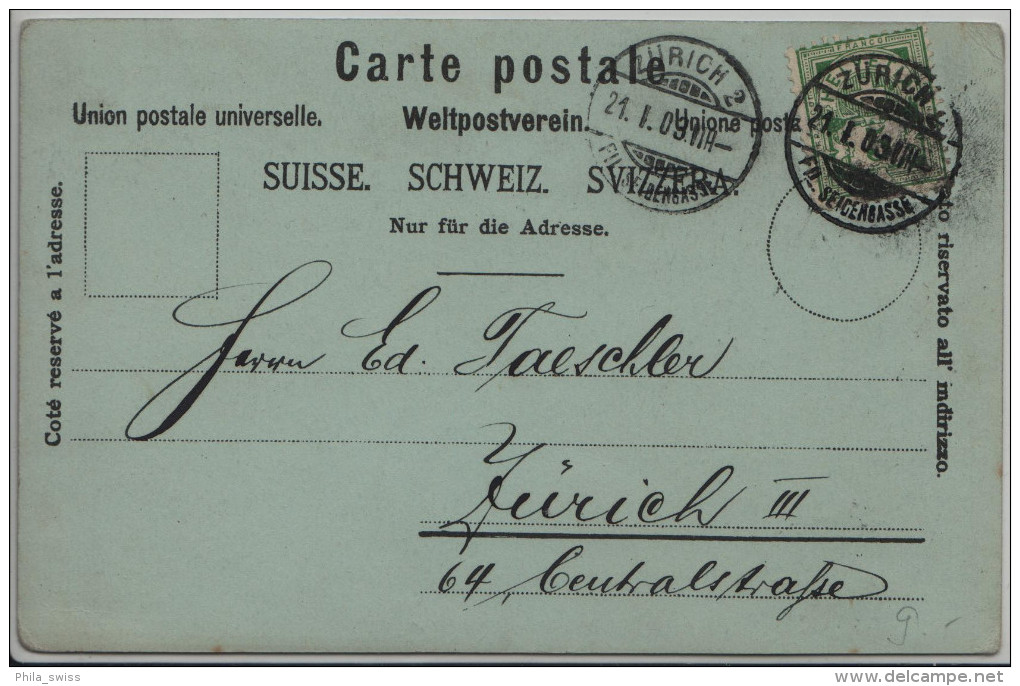 Carte postale
Union postale universelle. Weltpostverein. Unione posta
SUISSE. SCHWEIZ. SVIZZERA.
Nur für die Adresse.
Coté reservé a l'adresse.
riservato all' indirizzo.
FRANCO
ZÜRICH 2
21. I. 09. VIII–
FIL. SEIDENGASSE
ZÜRICH
21. I. 09. VIII–
FIL. SEIDENGASSE
Herrn Ed. Taeschler
Zürich III
64, Centralstraße
9.-
Phila_swiss
delcampe.net